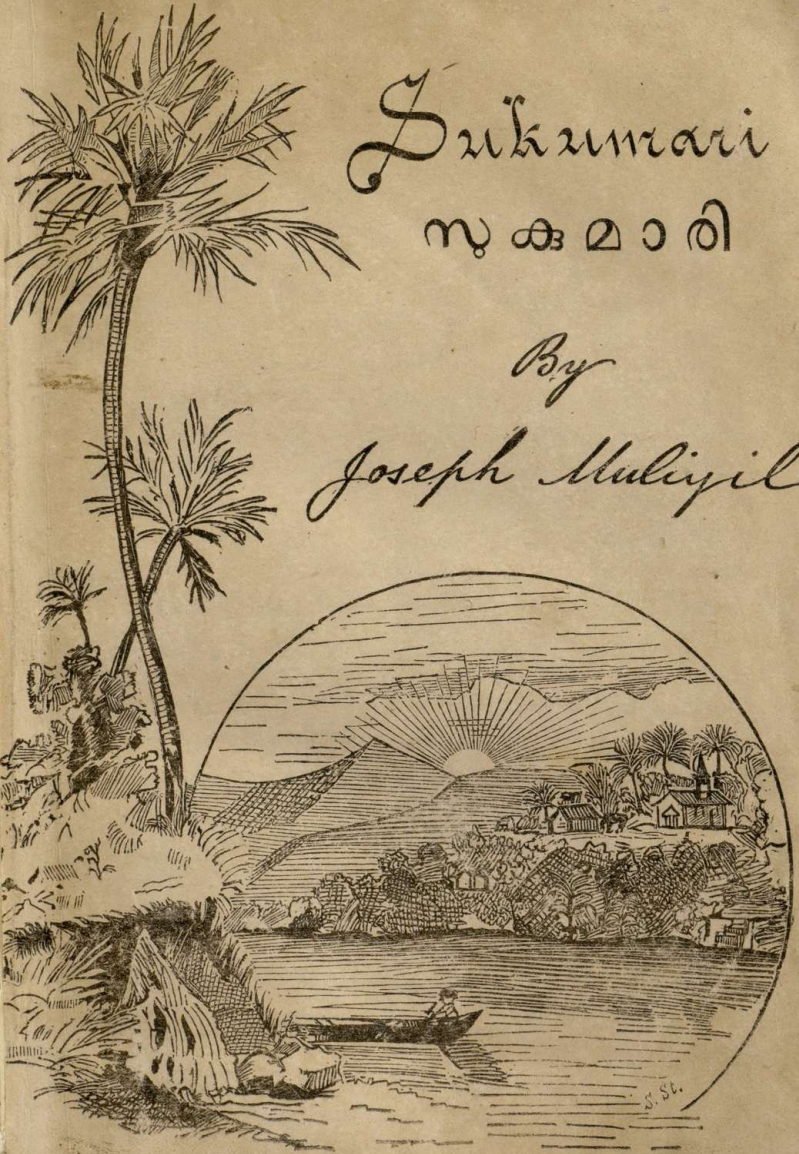 Sukumari
സുകുമാരി
By
Joseph Muliyil
S. St.